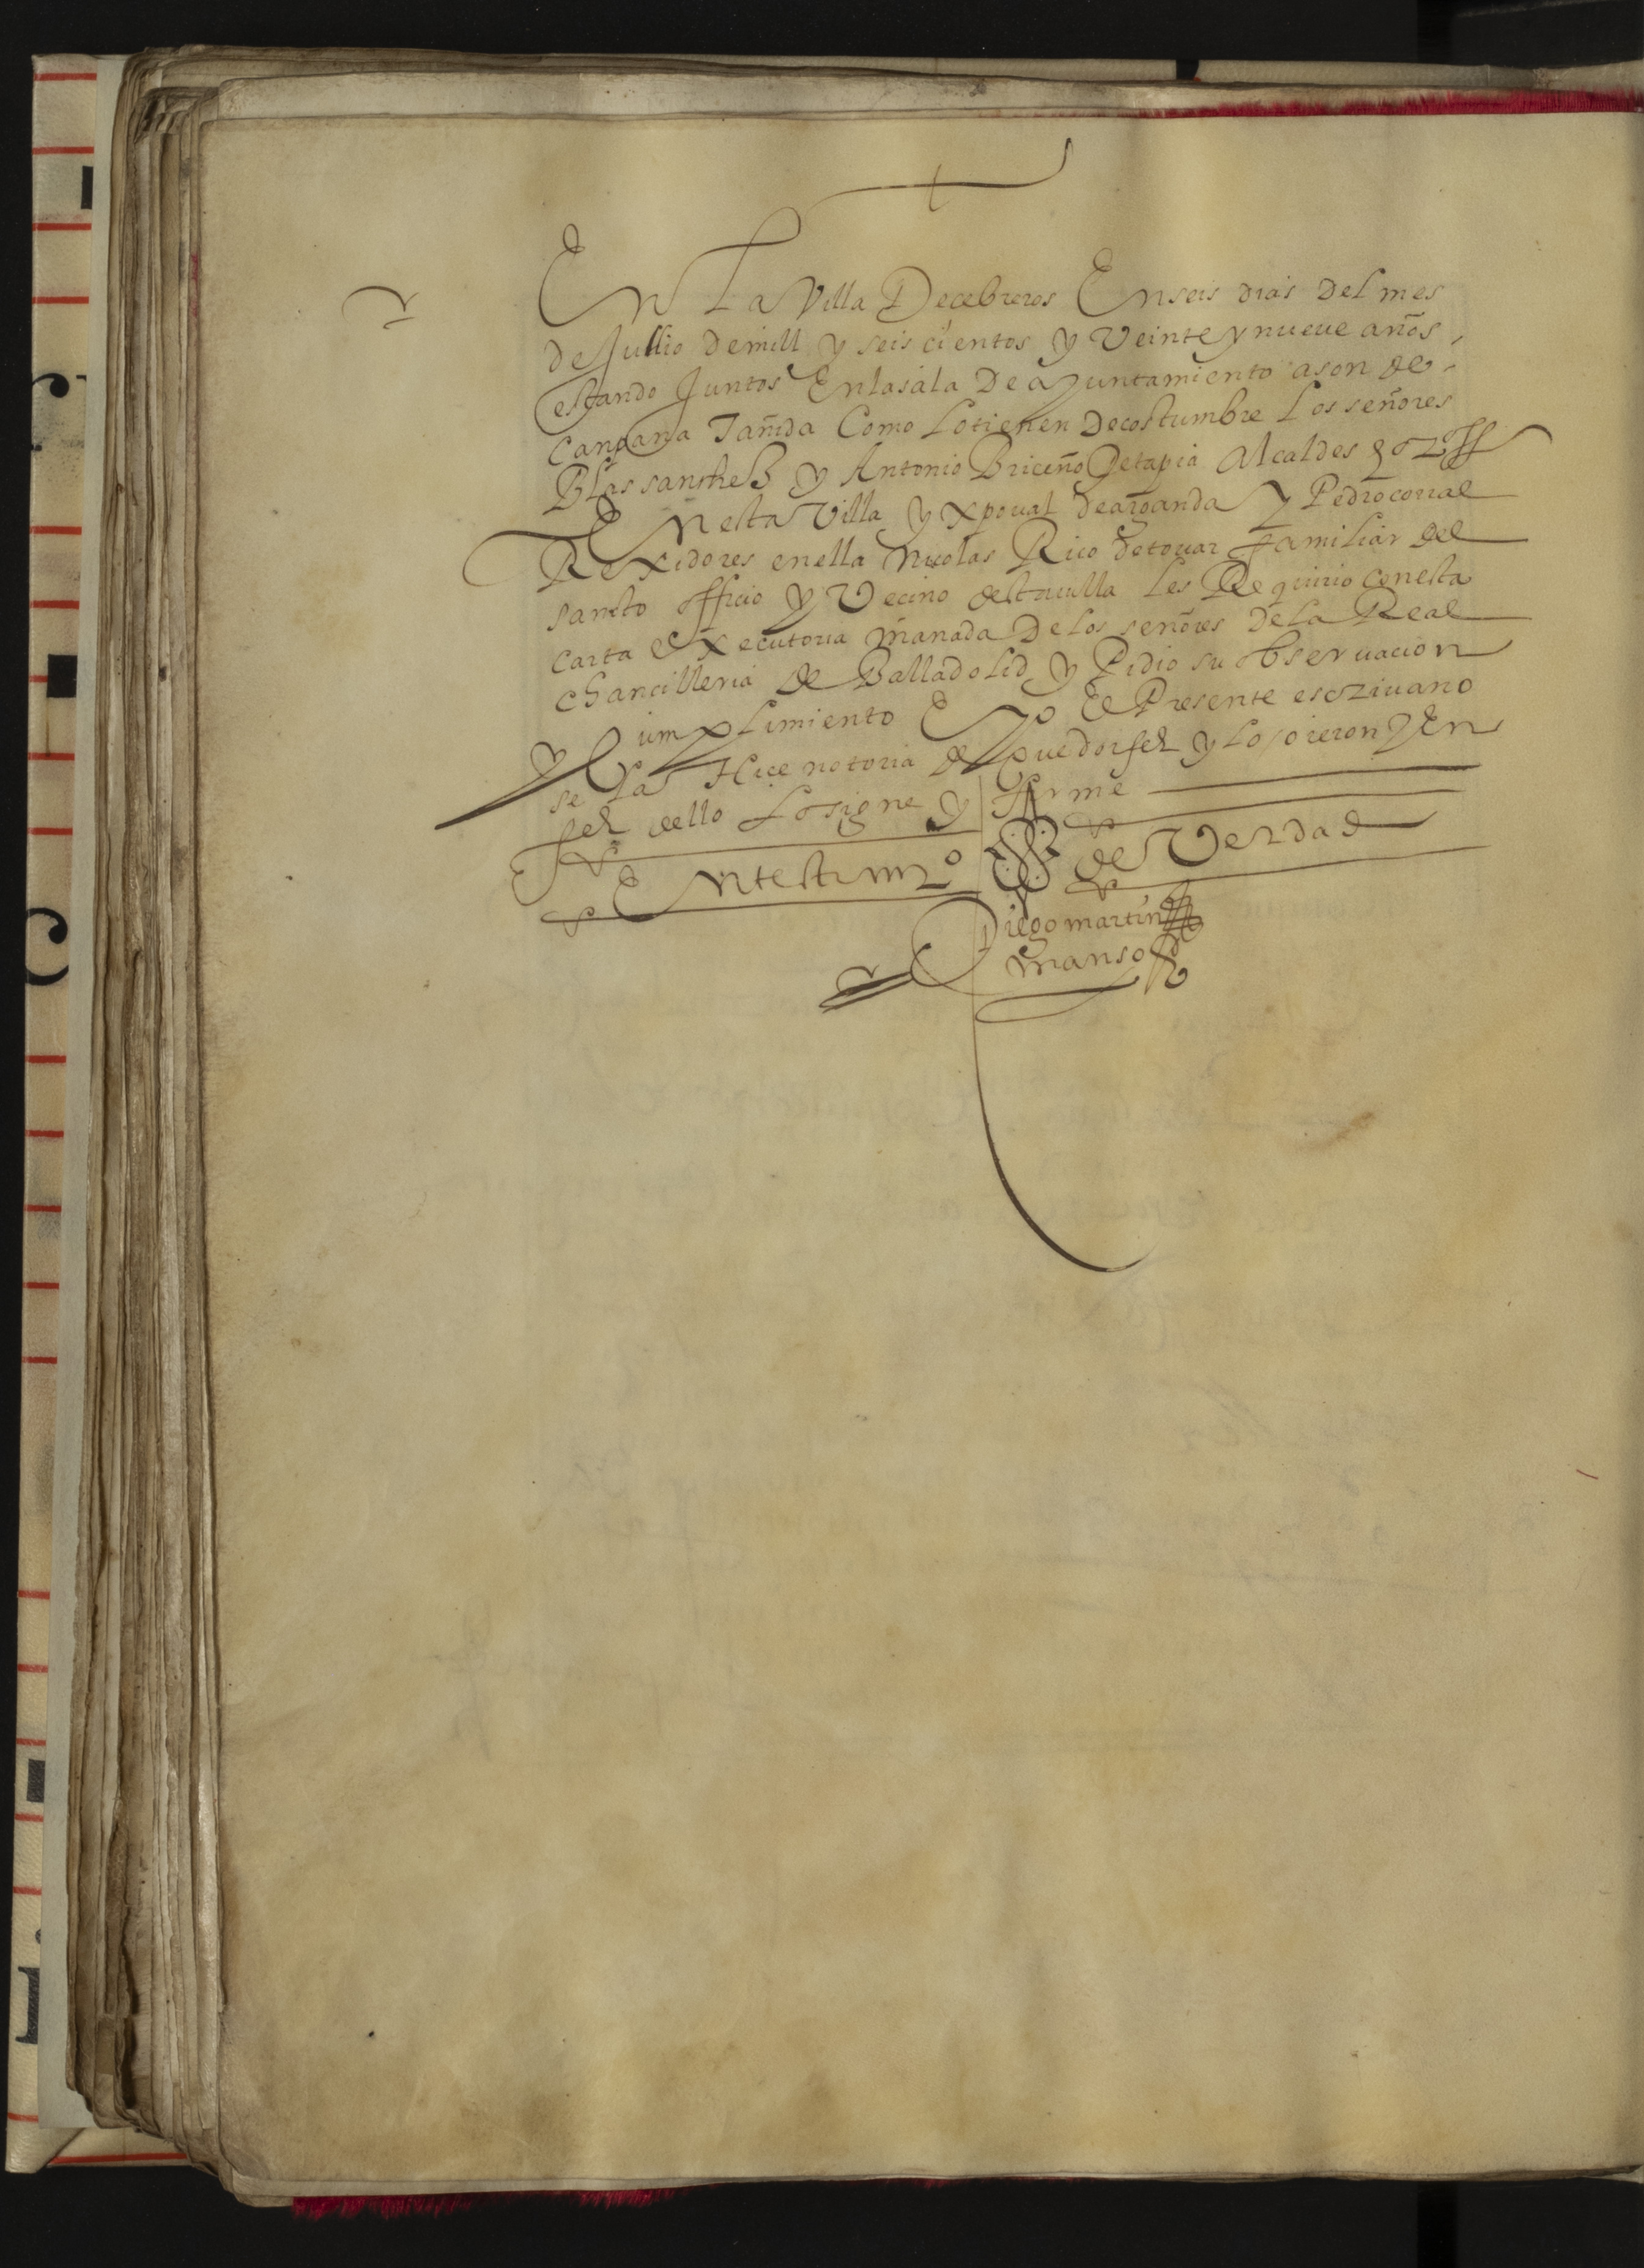 En La Villa Decebreros Enseis dias del mes
de Jullio demill y seis cientos y Veinte y nueve años
estando Juntos Enlasala De ayuntamiento ason de
Canpana Tañida Como Lotienen Decostumbre Los señores
Blas sanchez y Antonio Briceño Detapia Alcaldes hordin
Enesta Villa y xpoual dearganda y Pedro corral
Rexidores enella Nicolas Rico detouar familiar del
sancto officio y Vecino destauilla Les Requirio conesta
carta executoria manada De los señores De La Real
chancilleria de Balladolid y Pidio su obseruacion
y Cumplimiento E yo El Presente escriuano
se La Hice notoria de que doi fee y Lo oieron y En
fee dello Lo signe y firme
En testimo de Verdad
Diego martin
manso